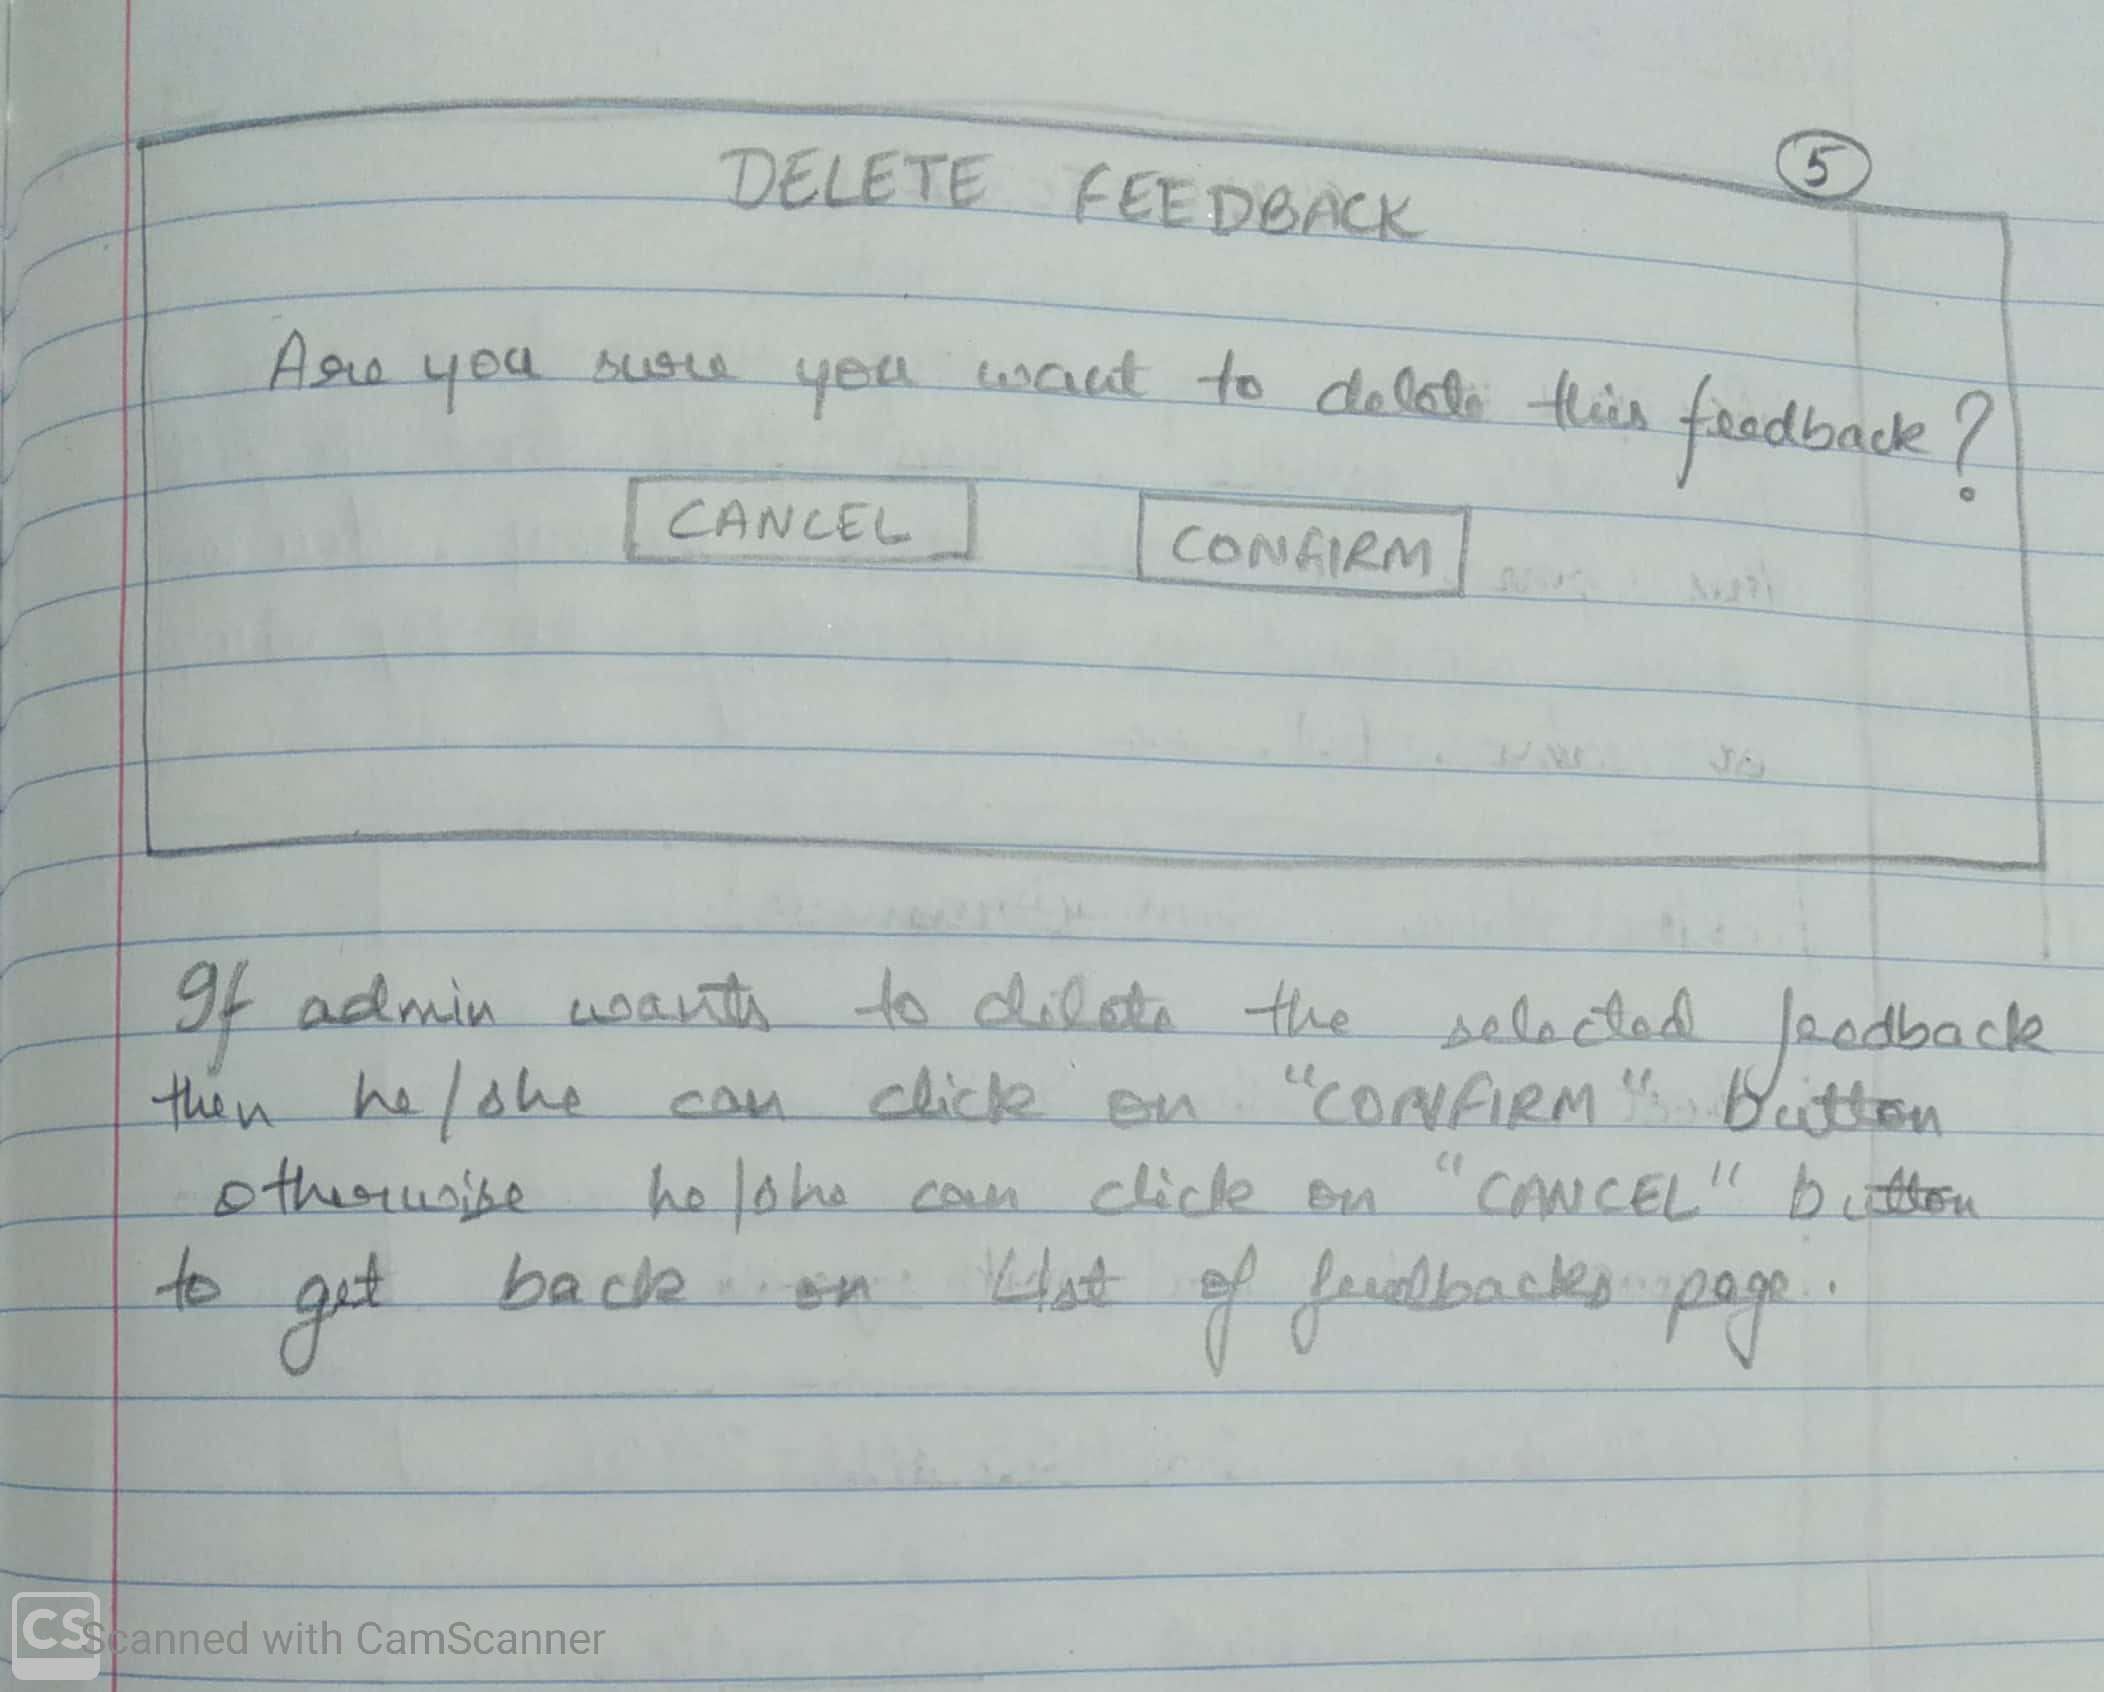 5
DELETE FEEDBACK
Are you sure you want to delete this feedback?
CANCEL
CONFIRM
If admin wants to delete the selected feedback
then he/she can click on "CONFIRM" button
otherwise he/she can click on "CANCEL" button
to get back on List of feedbacks page.
CS Scanned with CamScanner